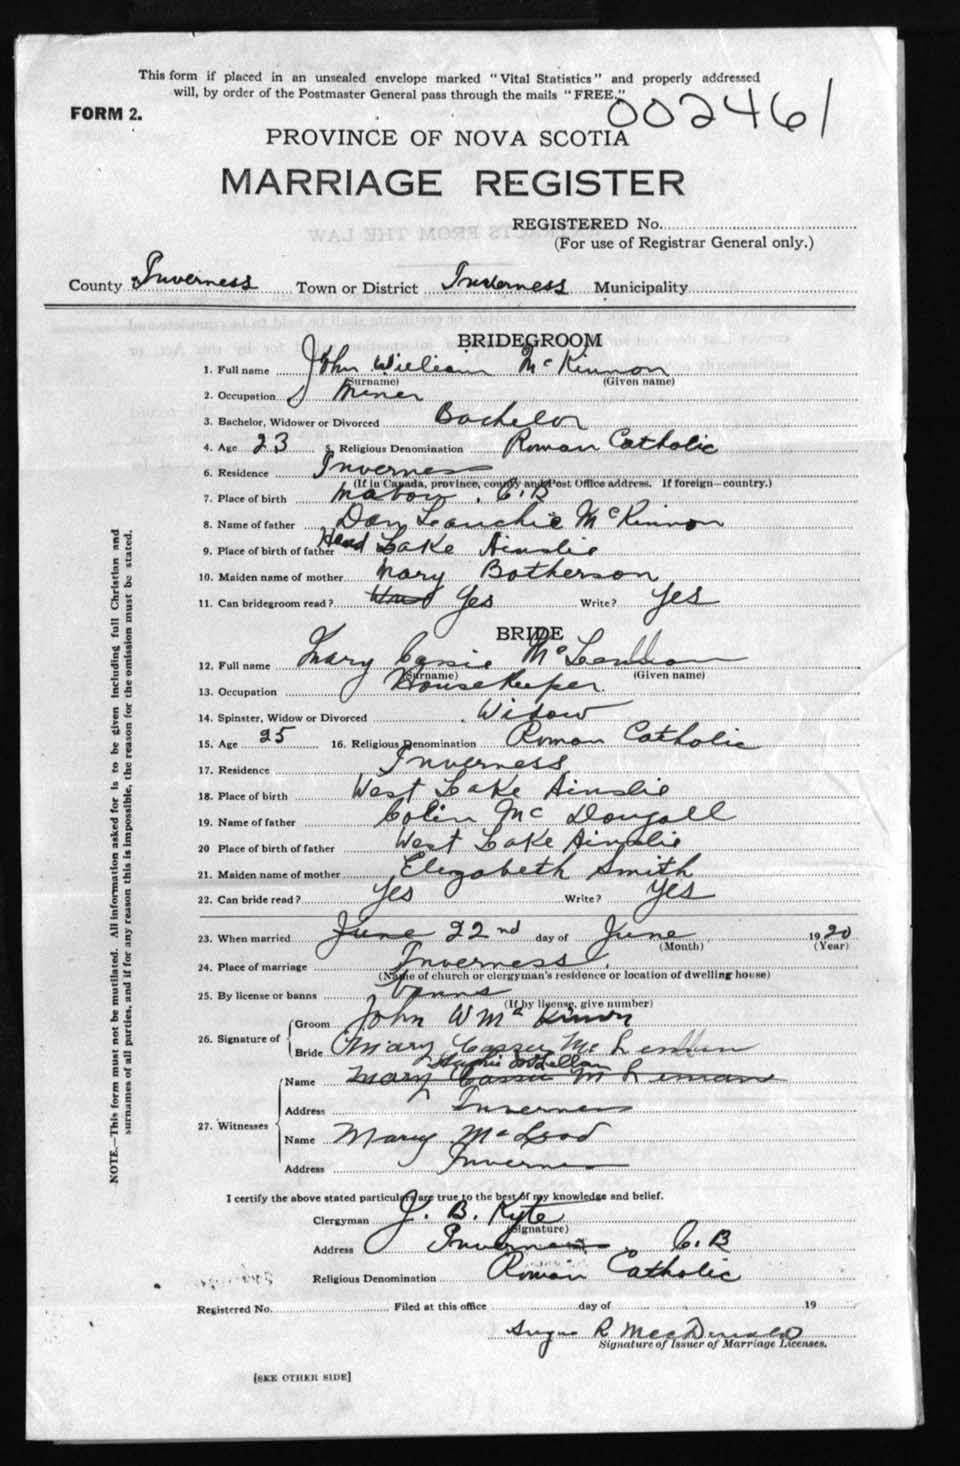 This form if placed in an unsealed envelope marked "Vital Statistics" and properly addressed
will, by order of the Postmaster General pass through the mails "FREE."
002461
FORM 2.
PROVINCE OF NOVA SCOTIA
MARRIAGE REGISTER
REGISTERED No.
(For use of Registrar General only.)
County Inverness Town or District Inverness Municipality
BRIDEGROOM
1. Full name John William McKinnon
(Surname) (Given name)
2. Occupation Miner
3. Bachelor, Widower or Divorced Bachelor
4. Age 23 5. Religious Denomination Roman Catholic
6. Residence Inverness
(If in Canada, province, county and Post Office address. If foreign—country.)
7. Place of birth Mabou, C. B
8. Name of father Dan Lauchie McKinnon
9. Place of birth of father Head Lake Ainslie
10. Maiden name of mother Mary Botherson
11. Can bridegroom read? Yes Write? Yes
BRIDE
12. Full name Mary Cassie McLennan
(Surname) (Given name)
13. Occupation Housekeeper
14. Spinster, Widow or Divorced Widow
15. Age 25 16. Religious Denomination Roman Catholic
17. Residence Inverness
18. Place of birth West Lake Ainslie
19. Name of father Colin McDougall
20 Place of birth of father West Lake Ainslie
21. Maiden name of mother Elizabeth Smith
22. Can bride read? Yes Write? Yes
23. When married June 22nd day of June 1920
(Month) (Year)
24. Place of marriage Inverness
(Name of church or clergyman's residence or location of dwelling house)
25. By license or banns banns
(If by license, give number)
26. Signature of
Groom John W Mc Kinnon
Bride Mary Cassie McLennan
27. Witnesses
Name Mary Cassie McLennan
Address Inverness
Name Mary McLeod
Address Inverness
I certify the above stated particulars are true to the best of my knowledge and belief.
Clergyman J. B. Kyte
(Signature)
Address Inverness, C. B
Religious Denomination Roman Catholic
Registered No. Filed at this office day of 19
Angus R MacDonald
Signature of Issuer of Marriage Licenses.
[SEE OTHER SIDE]
NOTE.—This form must not be mutilated. All information asked for is to be given including full Christian and
surnames of all parties, and if for any reason this is impossible, the reason for the omission must be stated.